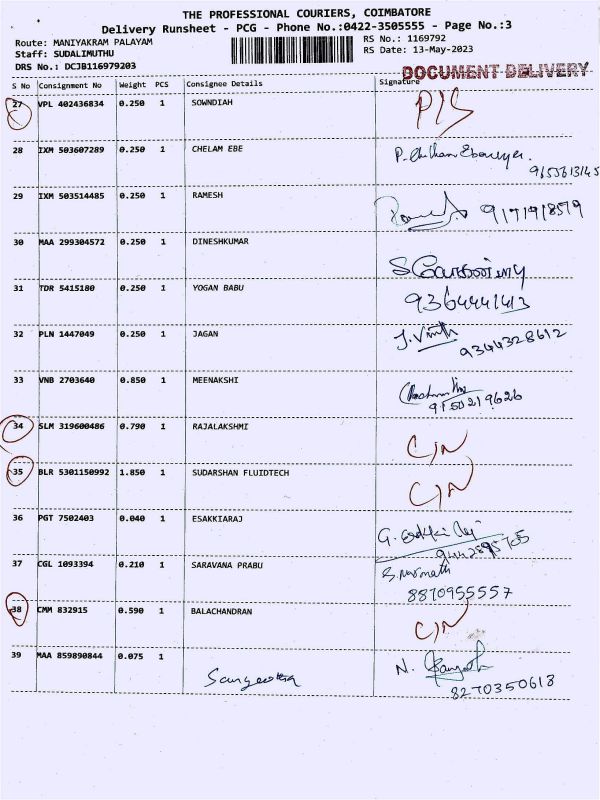 THE PROFESSIONAL COURIERS, COIMBATORE
Delivery Runsheet - PCG - Phone No.:0422-3505555 - Page No.:3
Route: MANIYAKRAM PALAYAM
RS No.: 1169792
Staff: SUDALIMUTHU
RS Date: 13-May-2023
DRS No.: DCJB116979203
DOCUMENT DELIVERY
S No Consignment No Weight PCS Consignee Details Signature
27 VPL 402436834 0.250 1 SOWNDIAH
28 IXM 503607289 0.250 1 CHELAM EBE
29 IXM 503514485 0.250 1 RAMESH
9171918579
30 MAA 299304572 0.250 1 DINESHKUMAR
31 TDR 5415180 0.250 1 YOGAN BABU
9364441413
32 PLN 1447049 0.250 1 JAGAN
9344328612
33 VNB 2703640 0.850 1 MEENAKSHI
9150219626
34 SLM 319600486 0.790 1 RAJALAKSHMI
35 BLR 5301150992 1.850 1 SUDARSHAN FLUIDTECH
36 PGT 7502403 0.040 1 ESAKKIARAJ
37 CGL 1093394 0.210 1 SARAVANA PRABU
8870955557
38 CMM 832915 0.590 1 BALACHANDRAN
39 MAA 859890844 0.075 1
Sangeetha
8270350618